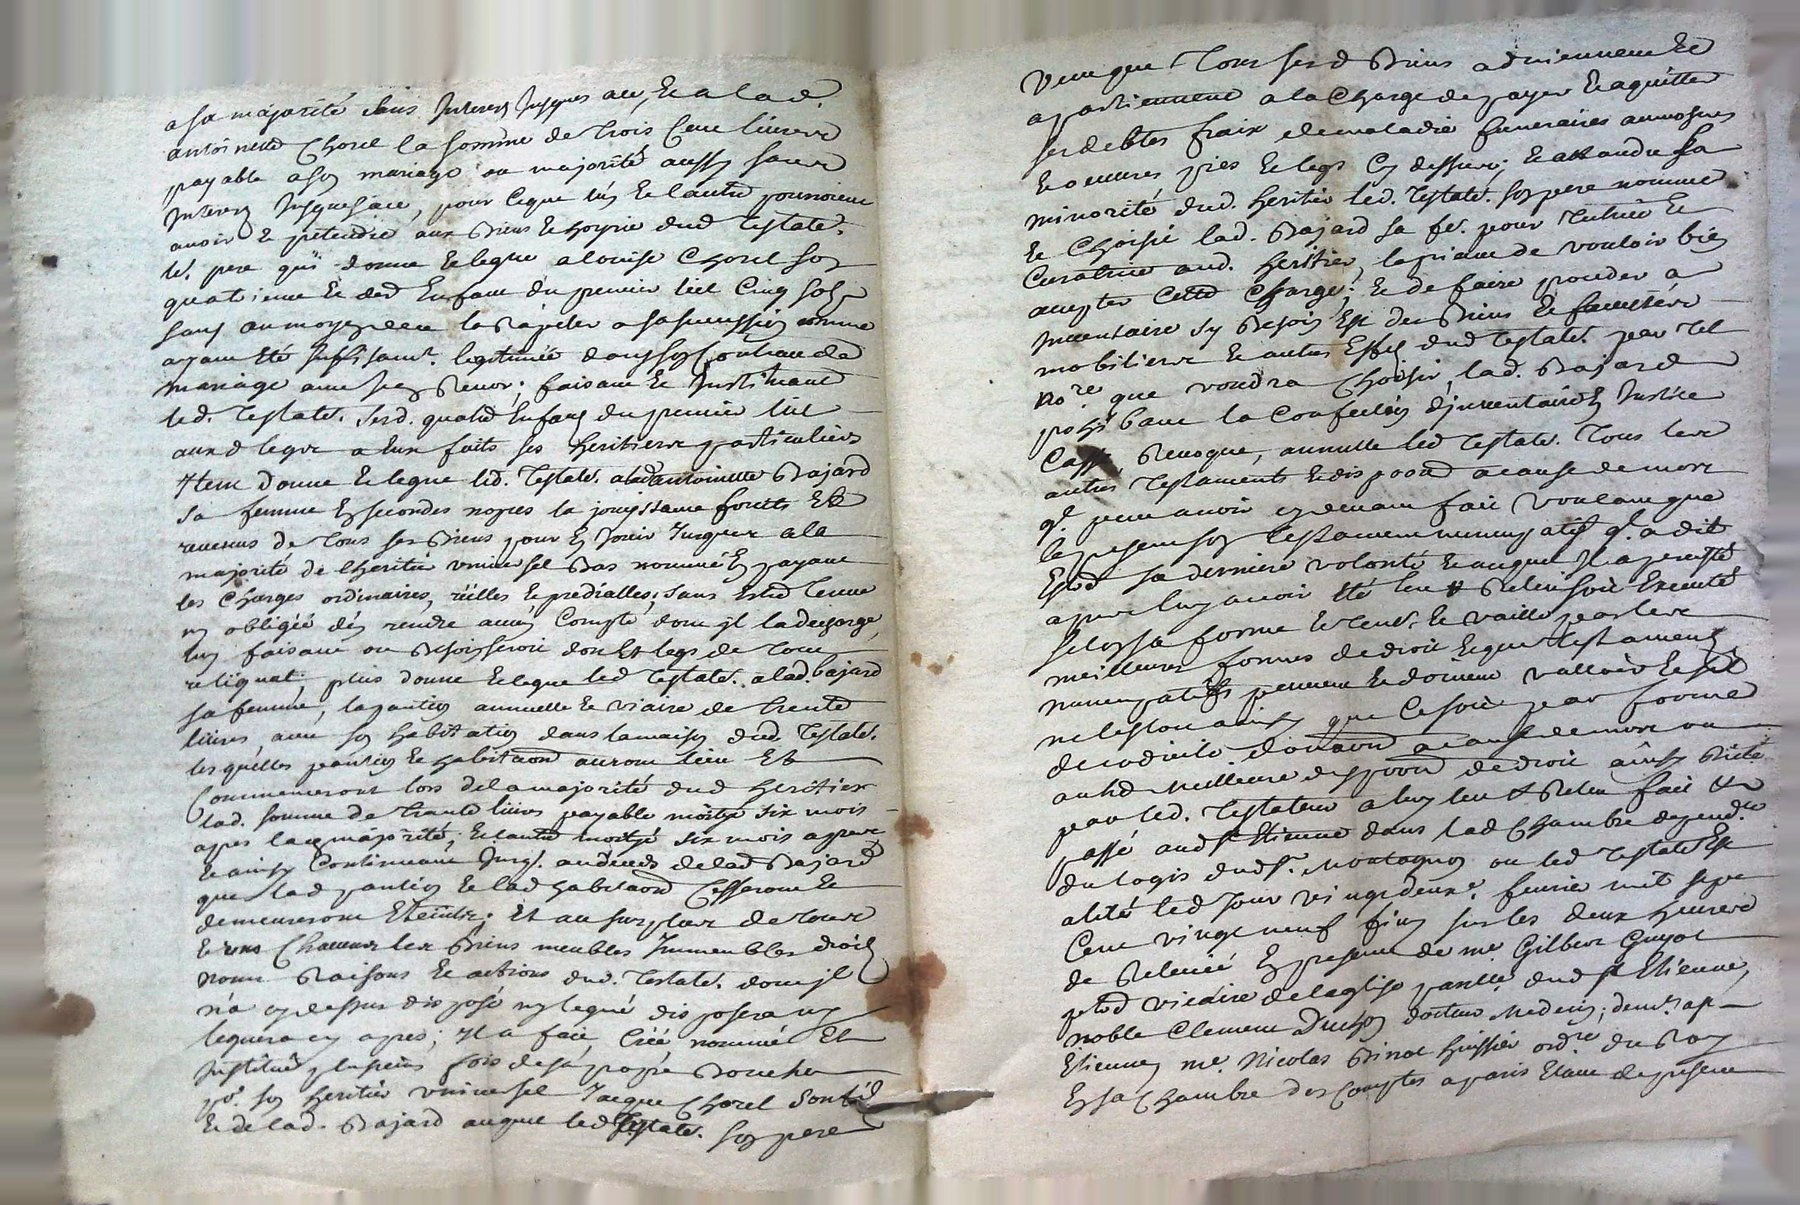 a sa majorité sans Interest Jusques a ce, Et a lad.
antoinette Chorel la somme de trois Cent livres
payable a son mariage ou majorité aussy sans
Interest Jusques a ce, pour ce que luy Et l'autre pourroient
avoir Et pretendre aux Biens Et hoyrie dud Testatr.
led. pere qui donne Et legue a louise Chorel son
quatrieme Et der Enfant du premier lict Cinq sols
sans au moyen de ce la rapeller a sa succession comme
ayant Eté suffisamt. legitimée dans son Contract de
mariage avec Renoy; faisant Et Instituant
led. Testatr. sesd. quatre Enfans du premier lict
auxd legs a Eux faits ses heritiers particuliers
Item donne Et legue led. Testatr. a lad antoinette Bajard
sa femme En secondes nopces la jouyssance fruits Et
revenus de tous ses Biens pour En Jouir Jusques a la
majorité de l'heritier universel Bas nommé En payant
les Charges ordinaires, réelles Et predialles; sans Estre tenue
ny obligée d'en rendre aucun Compte, dont jl la decharge,
luy faisant ou Besoin seroit don Et legs de tout
reliquat; plus donne Et legue led Testatr. a lad. Bajard
sa femme, la pantion annuelle Et viaire de trente
livres, avec son habitation dans la maison dud. Testatr.
lesquelles pantion Et habitaon auront lieu Et
Commenceront lors de la majorité dud heritier
lad. somme de trente livres payable moitye six mois
apres lad majorité, Et l'autre moitye six mois apres
Et ainsy Continuant Jusq. au deceds de lad Bajard
que lad pantion Et lad habitaon Cesseront Et
demeureront Eteintes; Et au surplus de tous
Et uns Chacuns les Biens meubles Immeubles droits
noms Raisons Et actions dud. Testatr. dont jl
n'a cy dessus disposé ny legué disposera ny
leguera cy apres; Il a fait, Créé nommé Et
Institué plusieurs fois de sa propre Bouche
pr. son heritier universel Jacque Chorel son fils
Et de lad. Bajard auquel led Testatr. son pere
veut que tous sesd Biens adviennent Et
apartiennent a la Charge de payer Et aquitter
ses debtes fraix de maladie funeraires aumosnes
Et oeuvres pies Et legs Cy dessus; Et attandu sa
minorité dud. heritier led. Testatr. son pere nomme
Et Choisit lad. Bajard sa fe. pour Tutrice Et
Curatrice aud. heritier, la priant de vouloir bien
accepter Cette Charge; Et de faire proceder a
Inventaire s'y Besoin Est des Biens Et facultés
mobiliers Et autres Effets dud testatr. par tel
nore. que voudra Choisir, lad. Bajard
prohibant la Confection d'jnventaire En Justice
Casse, Revoque, annulle led Testatr. tous les
autres Testaments Et dispoons a cause de mort
ql. peut avoir cy devant fait voulant que
le present son Testament nuncupatif ql. a dit
Estre sa derniere volonté Et auquel Il a persisté
apres luy avoir Eté leu & Releu soit Executé
selon sa forme Et tenr. Et vaille par les
meilleures formes de droit Et que Testaments
nuncupatifs peuvent Et doivent valloir Et s'il
ne l'estoit ainsy que Ce soit par forme
de codicile donaon a cause de mort ou
autre meilleure dispoon de droit ainsy dicté
par led. Testateur a luy leu & Releu fait &
passé aud St Etienne dans lad Chambre depend.te
du logis dud Sr. Montagnon ou led Testatr Est
alité led Jour vingt deuxe. fevrier mil sept
Cent vingt neuf finy sur les deux heures
de Relevée En presence de me. Gilbert Guyot
pbre vicaire de l'eglise parelle dud St Etienne,
noble Clement Duchon docteur Medecin; demt. ap
Etienne me. Nicolas Binot huissier ordre du Roy
En sa Chambre des Comptes a paris Etant de present